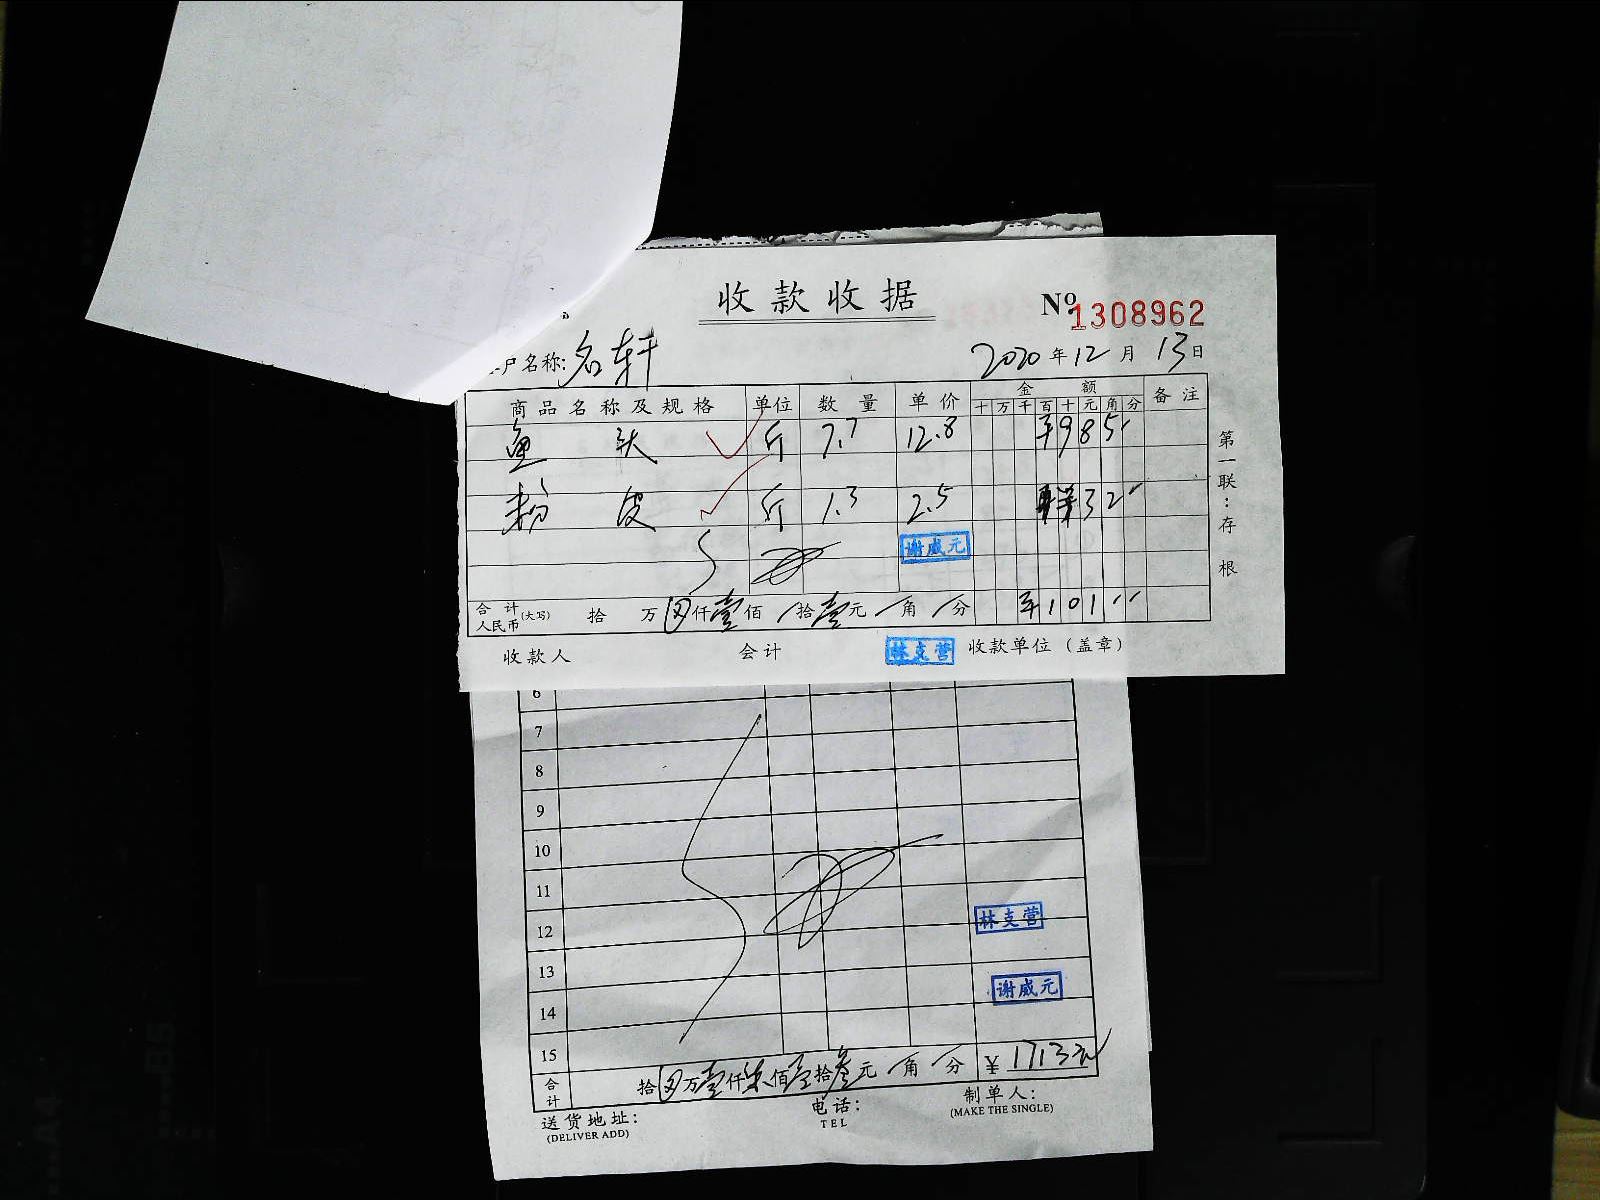 收款收据
No 1308962
户名称: 名轩 2020年12月13日
商品名称及规格 单位 数量 单价 金额 备注
十万千百十元角分
鱼头 斤 7.7 12.8 ¥985
粉皮 斤 1.3 2.5 32
谢威元
合计人民币(大写) 拾 万 仟壹佰 拾壹元 角 分 ¥101
收款人 会计 林支营 收款单位(盖章)
第一联:存根
6
7
8
9
10
11
12 林支营
13
14 谢威元
15
合计 拾 万壹仟柒佰壹拾叁元 角 分 ¥1713元
送货地址: 电话: 制单人:
(DELIVER ADD) TEL (MAKE THE SINGLE)